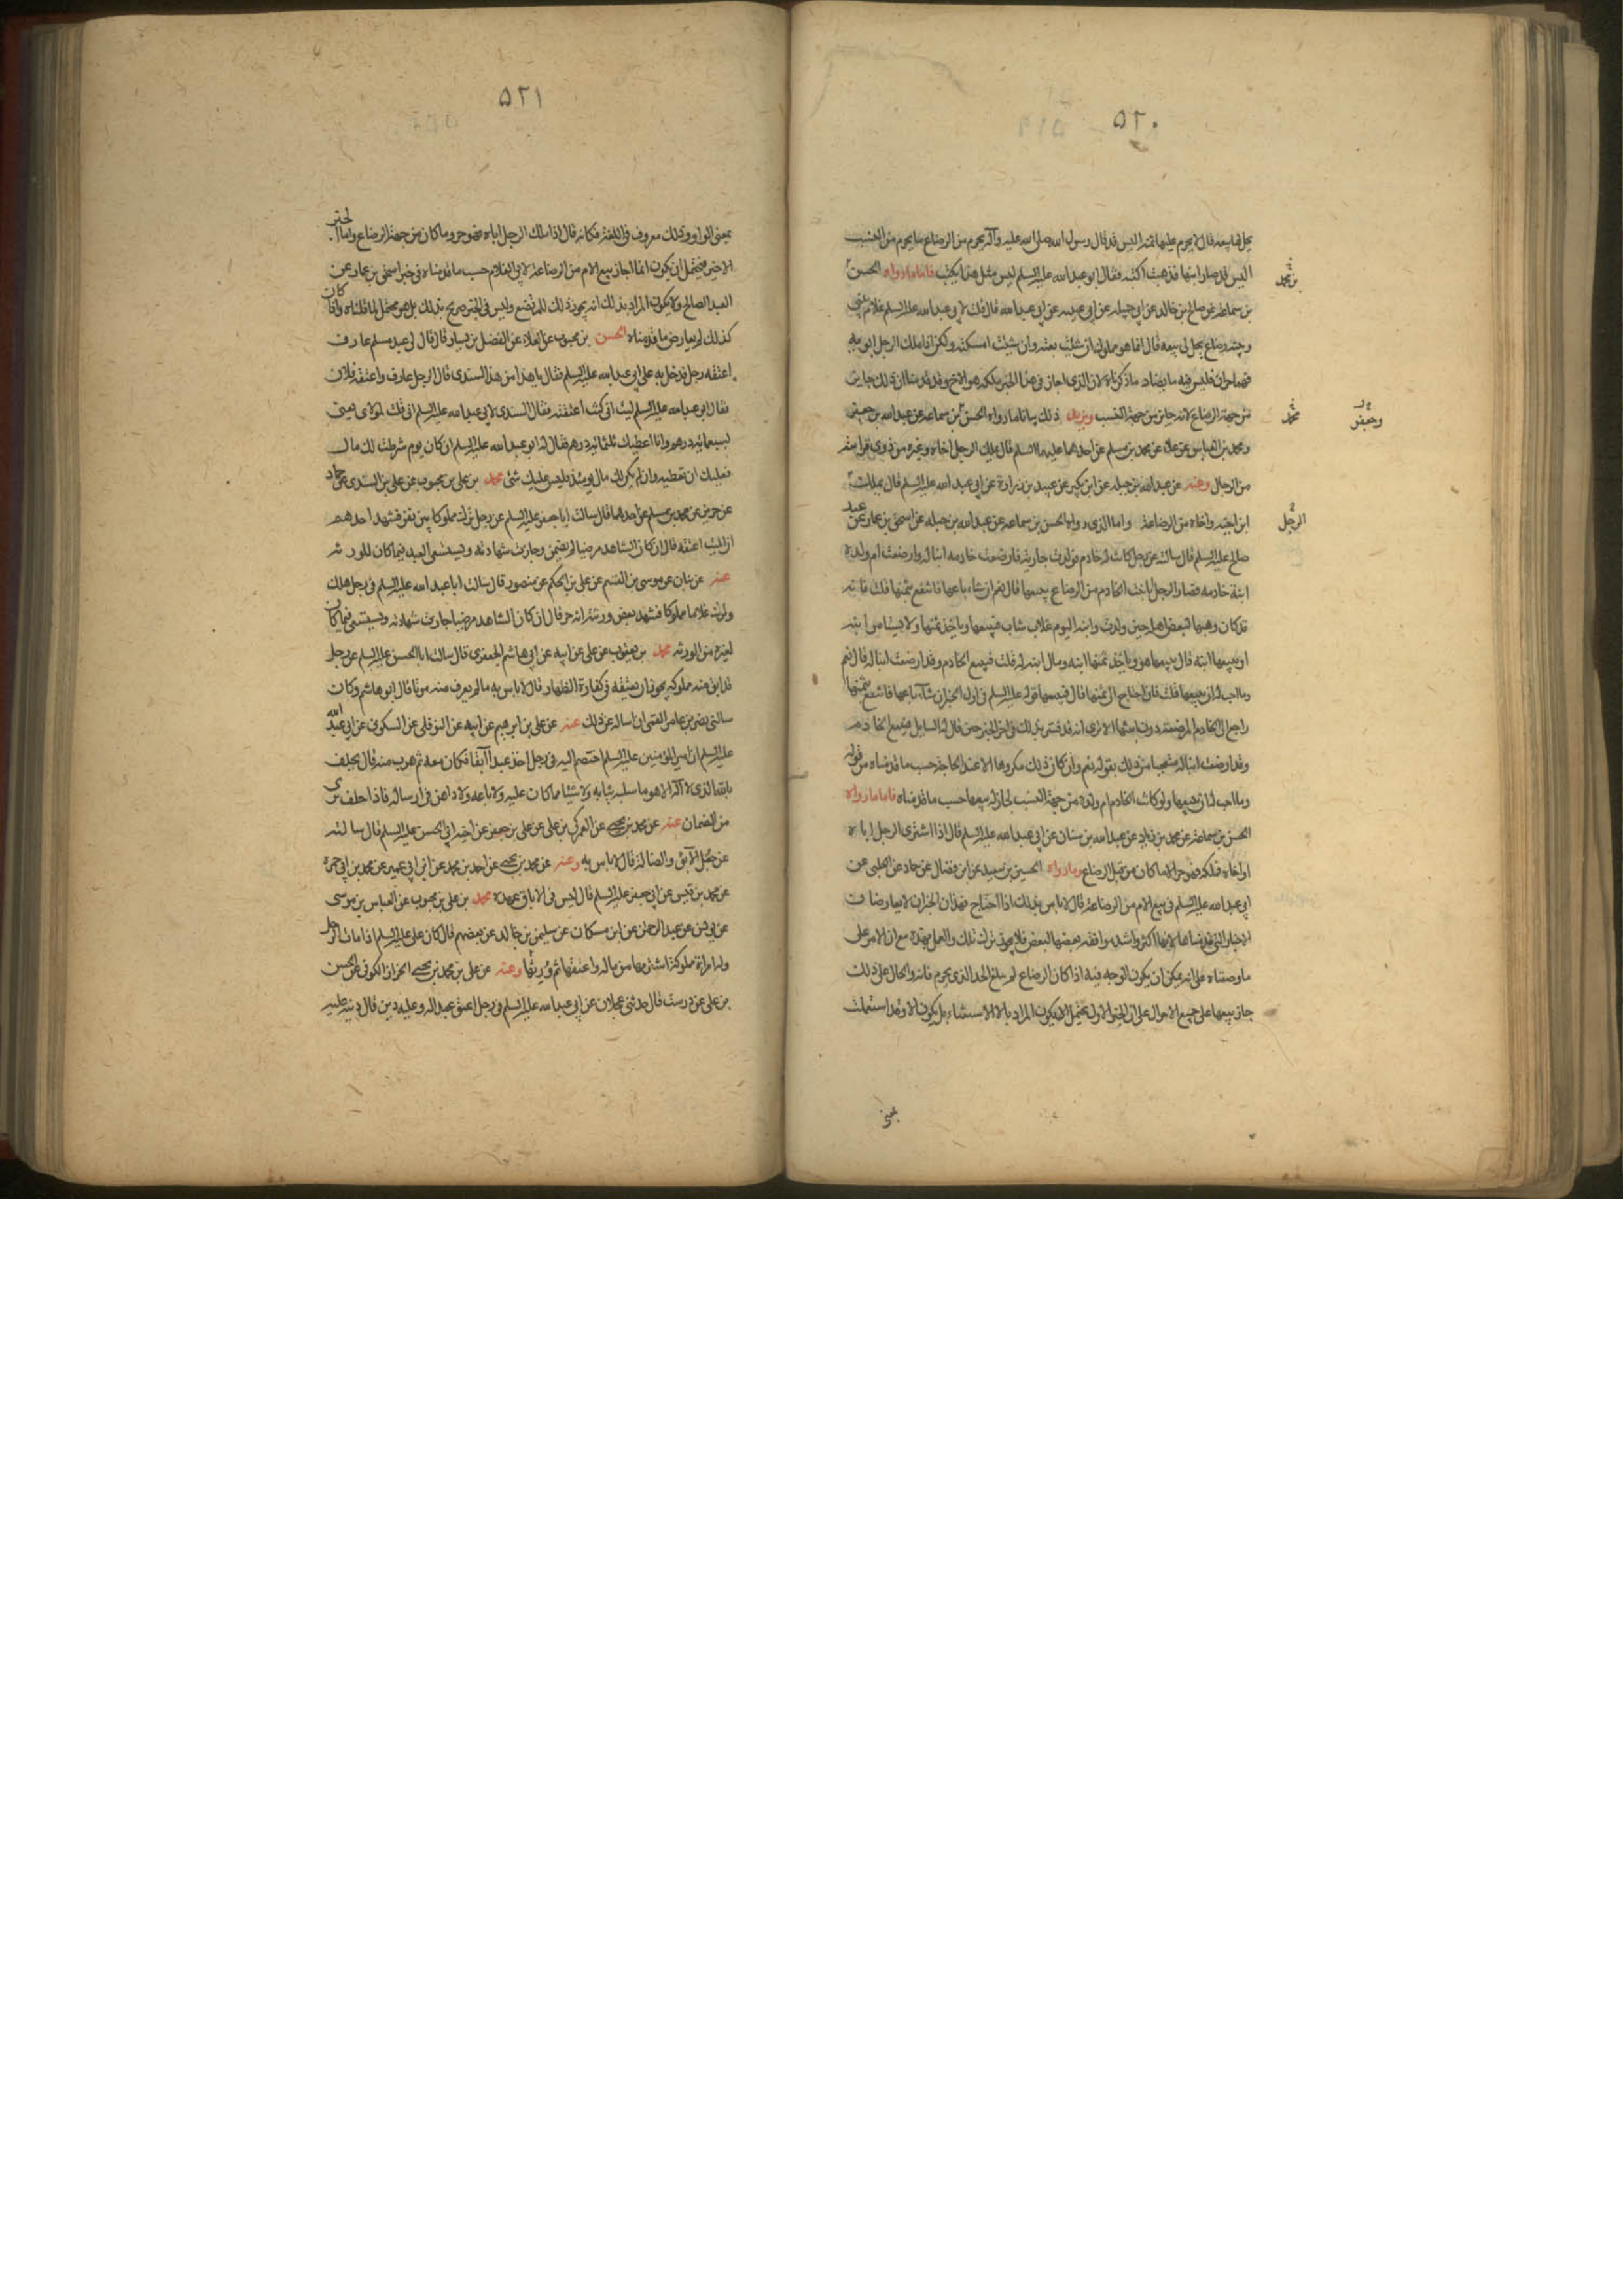 ٥٢٠
يحل لها بيعه قال لا يحرم عليها ثمنه اليس قد قال رسول الله صلى الله عليه وآله يحرم من الرضاع ما يحرم من النسب
اليس قد صار ابنها فذهبت اكتبه فقال ابو عبد الله عليه السلم ليس مثل هذا يكتب فاما ما رواه الحسن
بن محمد
بن سماعة عن صالح بن خالد عن ابي جميلة عن ابي عبد الله قال قلت لابي عبد الله عليه السلم غلام بيني
وبينه رضاع يحل لي بيعه قال انما هو مملوك ان شئت بعته وان شئت امسكته ولكن اذا ملك الرجل ابويه
فهما حران فليس فيه ما يضاد ما ذكرناه لان الذي اجاز في هذا الخبر بملكه هو الاخ وقد قدمنا ان ذلك جايز
من جهة الرضاع لانه جايز من جهة النسب ويزيد ذلك بيانا ما رواه الحسن بن سماعة عن عبد الله بن
محمد
وجعفر
ومحمد بن العباس عن علا عن محمد بن مسلم عن احدهما عليهما السلم قال يملك الرجل اخاه وغيره من ذوي قرابته
من الرجال وعنه عن عبد الله بن جبلة عن ابن بكير عن عبيد بن زرارة عن ابي عبد الله عليه السلم قال يملك
الرجل
ابن اخيه واخاه من الرضاعة واما الذي رواه الحسن بن سماعة عن عبد الله بن جبلة عن اسحق بن عمار عن عبد
صالح عليه السلم قال سالته عن رجل كانت له خادم فولدت جارية فارضعت خادمه ابنا له وارضعت ام ولده
ابنة خادمه فصار الرجل ابا بنت الخادم من الرضاع يبيعها قال نعم ان شاء باعها فانتفع بثمنها قلت فانه
قد كان وهبها لبعض اهله حين ولدت وابنه اليوم غلام شاب فيبيعها وياخذ ثمنها ولا يستامر ابنه
او يبيعها ابنه قال يبيعها هو وياخذ ثمنها ابنه ومال ابنه له قلت فيبيع الخادم وقد ارضعت ابنا له قال نعم
وما احب له ان يبيعها قلت فان احتاج الى ثمنها قال فيبيعها قوله عليه السلم في اول الخبر ان شاء باعها فانتفع بثمنها
راجع الى الخادم المرضعة دون ابنتها الا ترى انه قد فسر بذلك في اخر الخبر حين قال له السايل فيبيع الخادم
وقد ارضعت ابنا له متعجبا من ذلك بقوله نعم وان كان ذلك مكروها الا عند الحاجة حسب ما قدمناه من قوله
وما احب له ان يبيعها ولو كانت الخادم ام ولده من جهة النسب لجاز له بيعها حسب ما قدمناه فاما ما رواه
الحسن بن سماعة عن محمد بن زياد عن عبد الله بن سنان عن ابي عبد الله عليه السلم قال اذا اشترى الرجل اباه
او اخاه فملكه فهو حر الا ما كان من قبل الرضاع وما رواه الحسين بن سعيد عن ابن فضال عن حماد عن الحلبي عن
ابي عبد الله عليه السلم في بيع الام من الرضاعة قال لا باس بذلك اذا احتاج فهذان الخبران لا يعارضان
الاخبار التي قدمناها لانها اكثر واشد موافقة بعضها لبعض فلا يجوز ترك تلك والعمل بهذه مع ان الامر على
ما وصفناه على انه يمكن ان يكون الوجه فيه اذا كان الرضاع لم يبلغ الحد الذي يحرم فانه والحال على ذلك
جاز بيعها على جميع الاحوال على ان الخبر الاول يحتمل الا يكون المراد بالا الاستثناء بل يكون الا وقد استعملت
بمعنى
٥٢١
بمعنى الواو وذلك معروف في اللغة فكانه قال اذا ملك الرجل اباه فهو حر وما كان من جهة الرضاع واما الخبر
الاخير فيحتمل ان يكون انما اجاز بيع الام من الرضاعة لابي الغلام حسب ما قدمناه في خبر اسحق بن عمار عن
العبد الصالح ولا يكون المراد بذلك انه يجوز ذلك للمرتضع وليس في الخبر صريح بذلك بل هو محتمل لما قلناه واذا كان
كذلك لم يعارض ما قدمناه الحسن بن محبوب عن العلاء عن الفضل بن يسار قال قال لي عبد مسلم عارف
اعتقه رجل فدخل به على ابي عبد الله عليه السلم فقال يا هذا من هذا السندي قال الرجل عارف واعتقه فلان
فقال ابو عبد الله عليه السلم ليت اني كنت اعتقته فقال السندي لابي عبد الله عليه السلم اني قلت لمولاي بعني
بسبعمائة درهم وانا اعطيك ثلثمائة درهم فقال له ابو عبد الله عليه السلم ان كان يوم شرطت لك مال
فعليك ان تعطيه وان لم يكن لك مال يومئذ فليس عليك شئ محمد بن علي بن محبوب عن علي بن السندي عن حماد
عن حريز عن محمد بن مسلم عن احدهما قال سالت ابا جعفر عليه السلم عن رجل ترك مملوكا بين نفر فشهد احدهم
ان الميت اعتقه قال ان كان الشاهد مرضيا لم يضمن وجازت شهادته ويستسعى العبد فيما كان للورثة
عنه عن بنان عن موسى بن القسم عن علي بن الحكم عن منصور قال سالت ابا عبد الله عليه السلم في رجل هلك
وترك غلاما مملوكا فشهد بعض ورثته انه حر فقال ان كان الشاهد مرضيا جازت شهادته ويستسعى فيما كان
لغيره من الورثة محمد بن يعقوب عن علي عن ابيه عن ابي هاشم الجعفري قال سالت ابا الحسن عليه السلم عن رجل
قد ابق منه مملوكه يجوز ان يعتقه في كفارة الظهار قال لا باس به ما لم يعرف منه موتا قال ابو هاشم وكان
سالني نصر بن عامر القمي ان اساله عن ذلك عنه عن علي بن ابرهيم عن ابيه عن النوفلي عن السكوني عن ابي عبد الله
عليه السلم ان امير المؤمنين عليه السلم اختصم اليه في رجل اخذ عبدا آبقا فكان معه ثم هرب منه قال يحلف
بالله الذي لا اله الا هو ما سلبه ثيابه ولا شيئا مما كان عليه ولا باعه ولا داهن في ارساله فاذا حلف برئ
من الضمان عنه عن محمد بن يحيى عن العمركي بن علي عن علي بن جعفر عن اخيه ابي الحسن عليه السلم قال سالته
عن جعل الآبق والضالة قال لا باس به وعنه عن محمد بن يحيى عن احمد بن محمد عن ابن ابي عمير عن محمد بن ابي حمزة
عن محمد بن قيس عن ابي جعفر عليه السلم قال ليس في الاباق عهدة محمد بن علي بن محبوب عن العباس بن موسى
عن يونس عن عبد الرحمن عن ابن مسكان عن سليمن بن خالد عن بعضهم قال كان علي عليه السلم اذا مات الرجل
وله امراة مملوكة اشتراها من ماله واعتقها ثم ورثها وعنه عن علي بن محمد بن يحيى الخزاز الكوفي عن الحسن
بن علي عن درست قال حدثني عجلان عن ابي عبد الله عليه السلم في رجل اعتق عبدا له وعليه دين قال دينه عليه